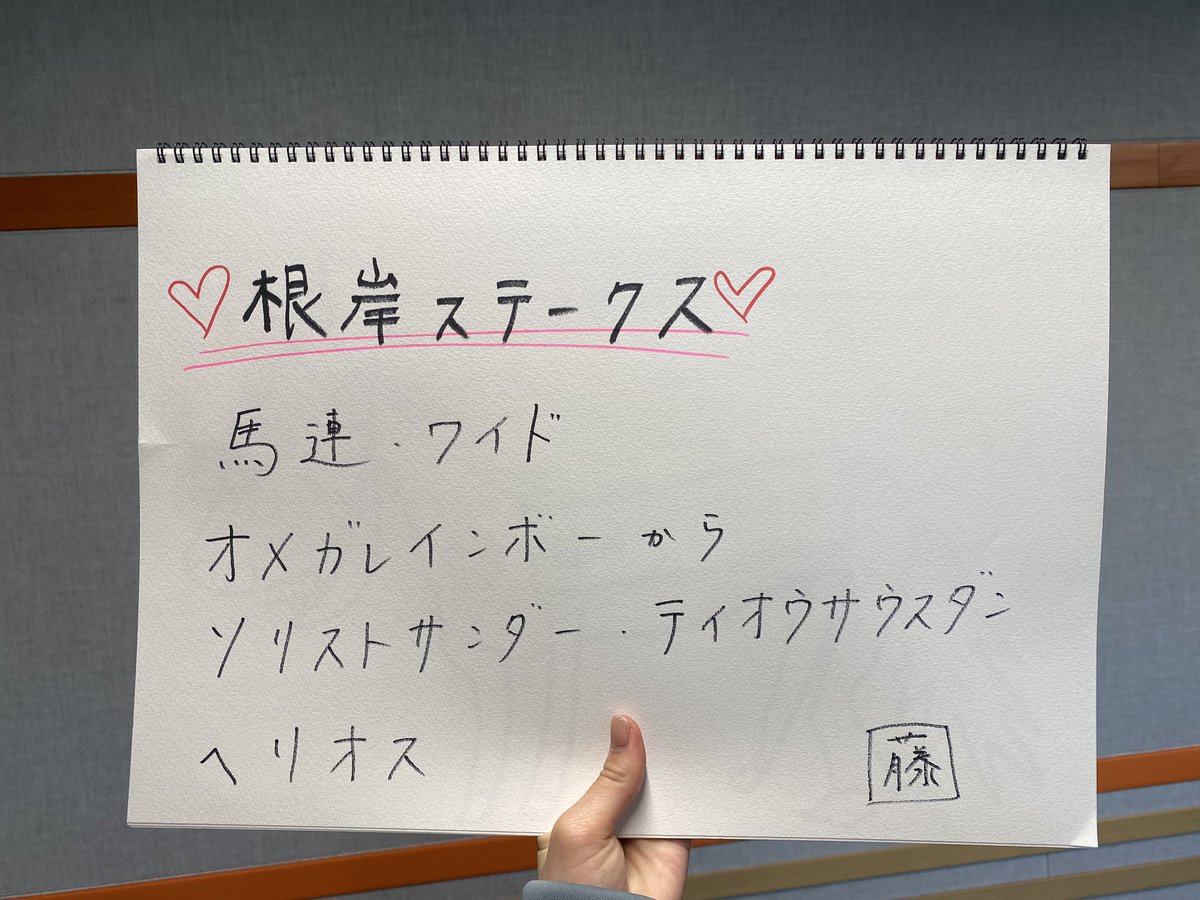 ♡根岸ステークス♡
馬連・ワイド
オメガレインボーから
ソリストサンダー・ティオウサウスダン
ヘリオス
藤